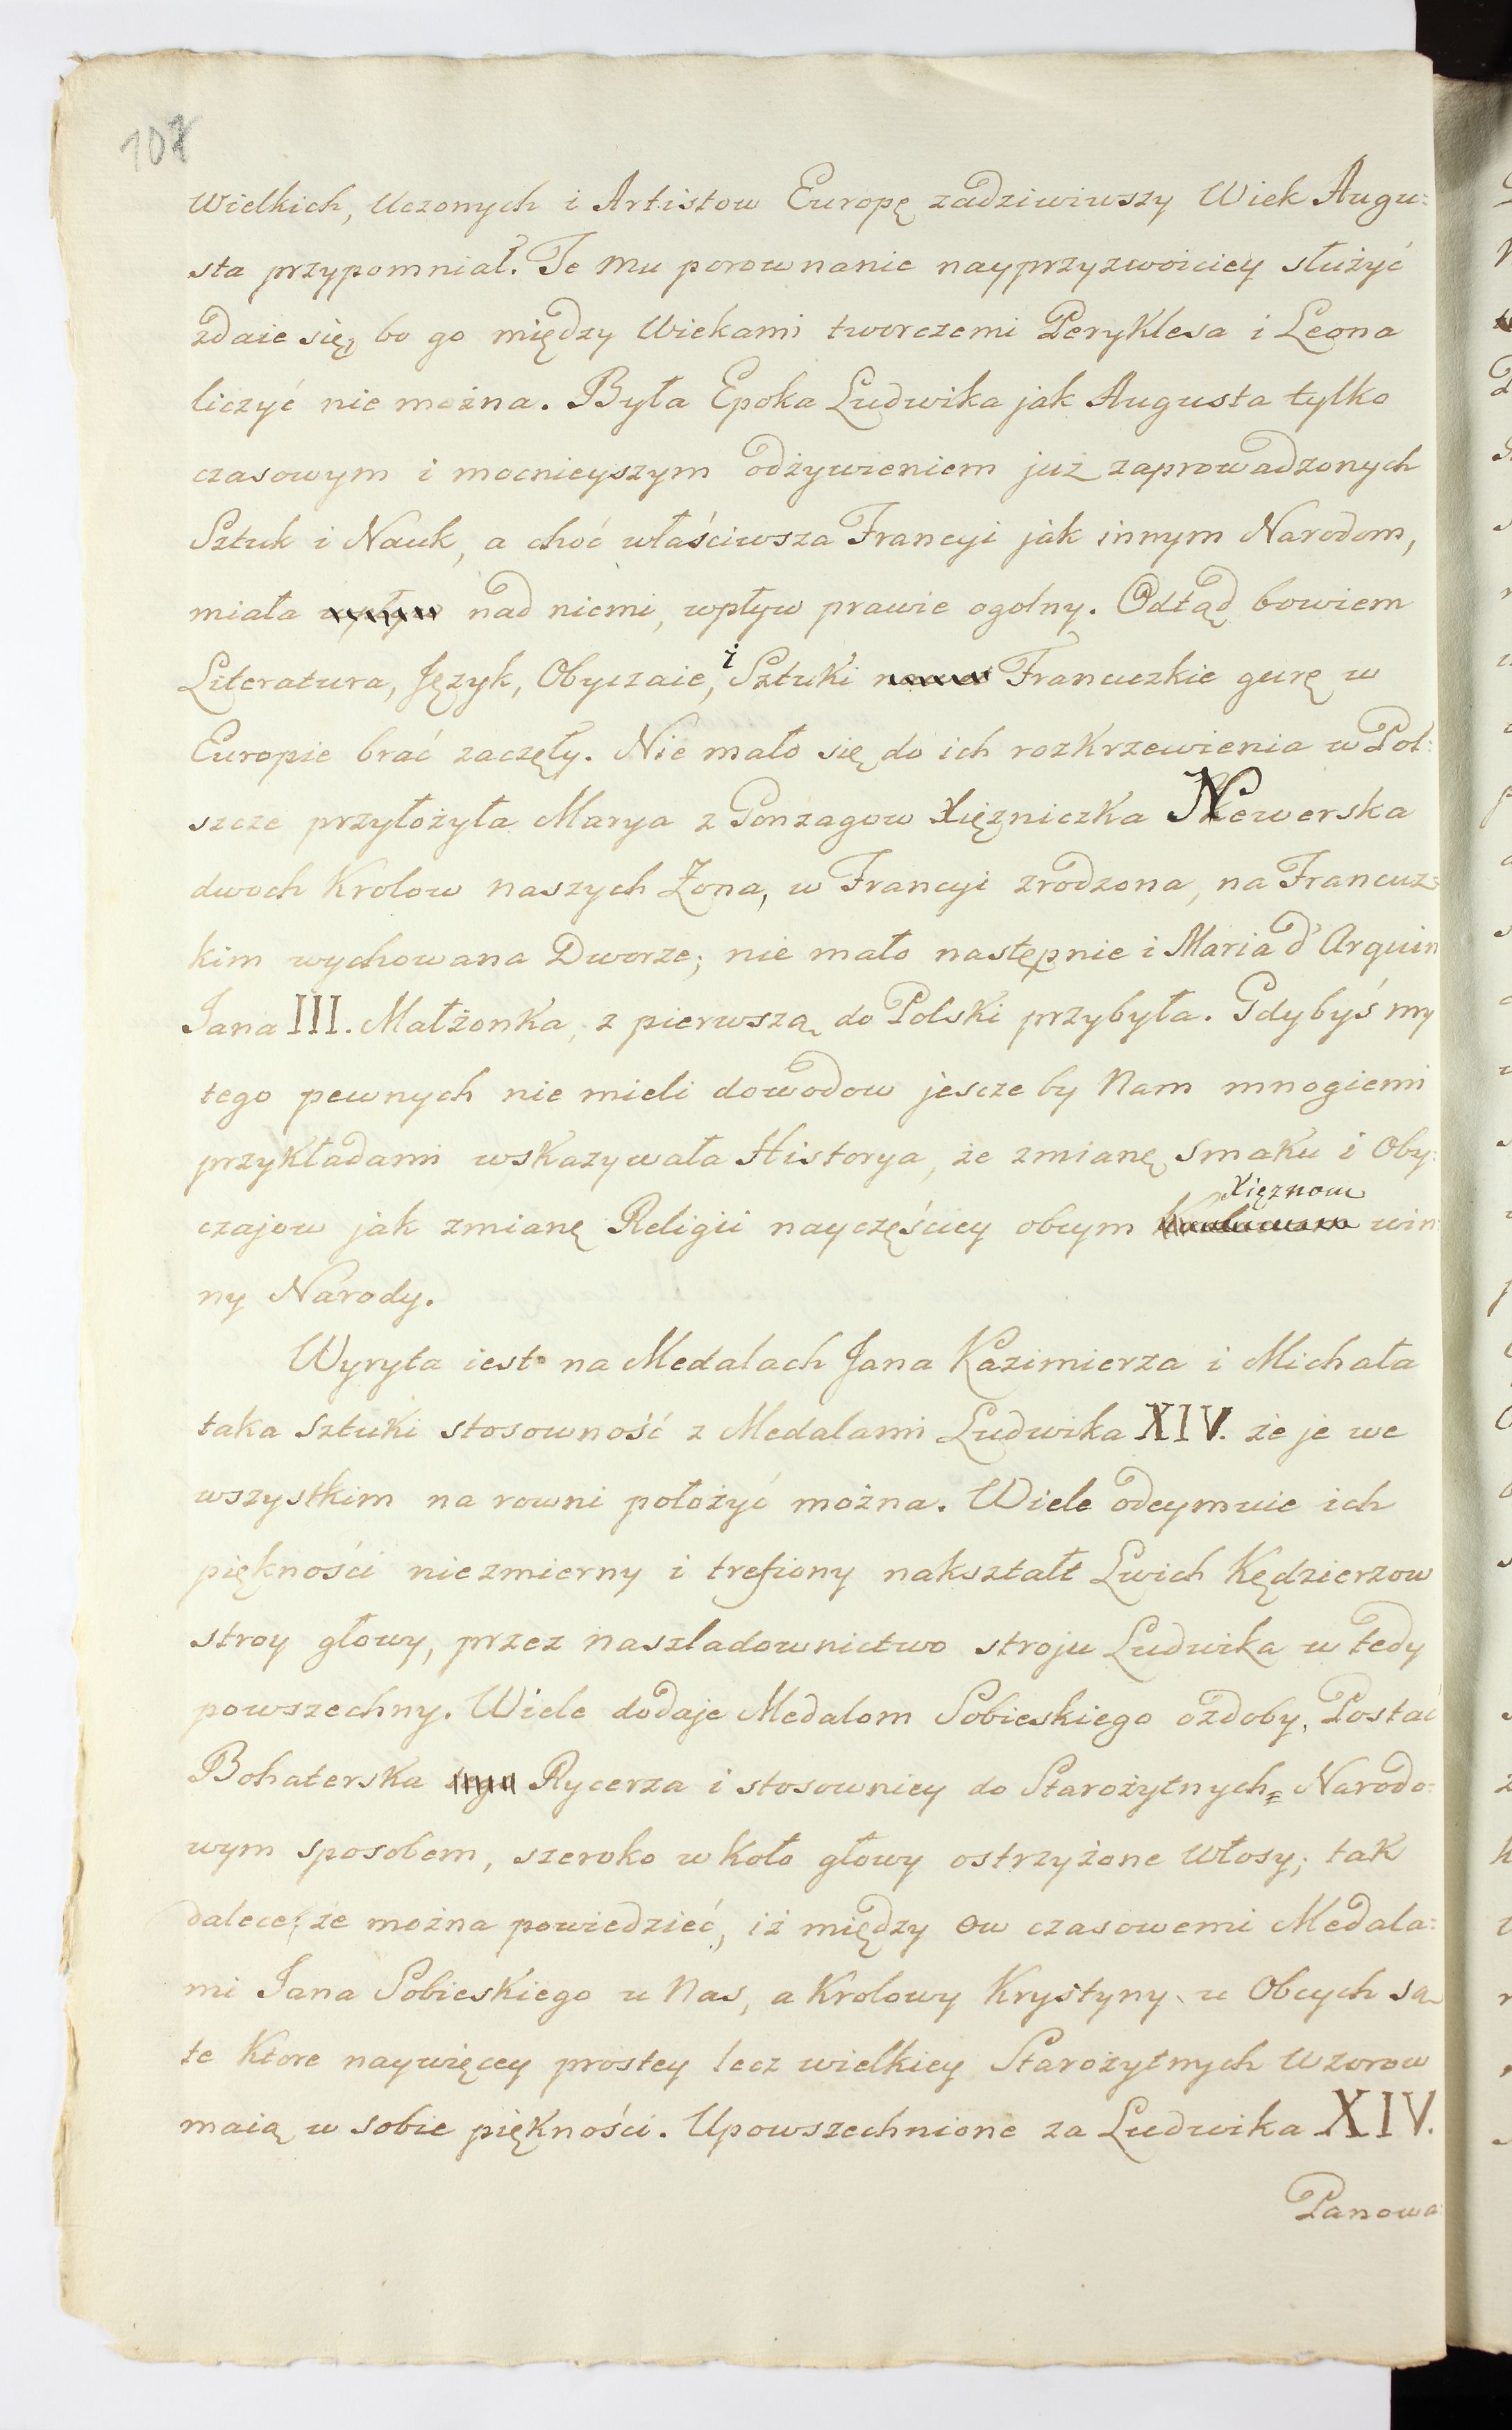 107
Wielkich, Uczonych i Artistow Europę zadziwiwszy Wiek Augu:
sta przypomniał. Te mu porownanie nayprzyzwoiciey służyć
zdaie się, bo go między Wiekami tworczemi Peryklesa i Leona
liczyć nie można. Była Epoka Ludwika jak Augusta tylko
czasowym i mocnieyszym odżywieniem już zaprowadzonych
Sztuk i Nauk, a choć właściwsza Francyi jak innym Narodom,
miała wpływ nad niemi, wpływ prawie ogolny. Odtąd bowiem
Literatura, Język, Obyczaie, i Sztuki Francuzkie gurę w
Europie brać zaczęły. Nie mało się do ich rozkrzewienia w Pol:
szcze przyłożyła Marya z Gonzagow Xięzniczka Newerska
dwoch Krolow naszych Zona, w Francyi zrodzona, na Francuz:
kim wychowana Dworze; nie mało następnie i Maria d'Arquin
Jana III. Małżonka, z pierwszą do Polski przybyła. Gdybyś my
tego pewnych nie mieli dowodow jescze by Nam mnogiemi
przykładami wskazywała Historya, że zmianę smaku i Oby:
czajow jak zmianę Religii nayczęściey obcym Xięznom win
ny Narody.
Wyryta iest na Medalach Jana Kazimierza i Michała
taka sztuki stosowność z Medalami Ludwika XIV. że je we
wszystkim na rowni położyć można. Wiele odeymuie ich
piękności niezmierny i trefiony nakształt Lwich Kędzierzow
stroy głowy, przez naszladownictwo stroju Ludwika w tedy
powszechny. Wiele dodaje Medalom Sobieskiego ozdoby, Postać
Bohaterska tego Rycerza i stosowniey do Starożytnych Narodo:
wym sposobem, szeroko w koło głowy ostrzyżone Włosy; tak
dalece; że można powiedzieć, iż między ow czasowemi Medala:
mi Jana Sobieskiego u Nas, a Krolowy Krystyny u Obcych są
te Ktore naywięcey prostey lecz wielkiey Starożytnych Wzorow
maią w sobie piękności. Upowszechnione za Ludwika XIV.
Panowa